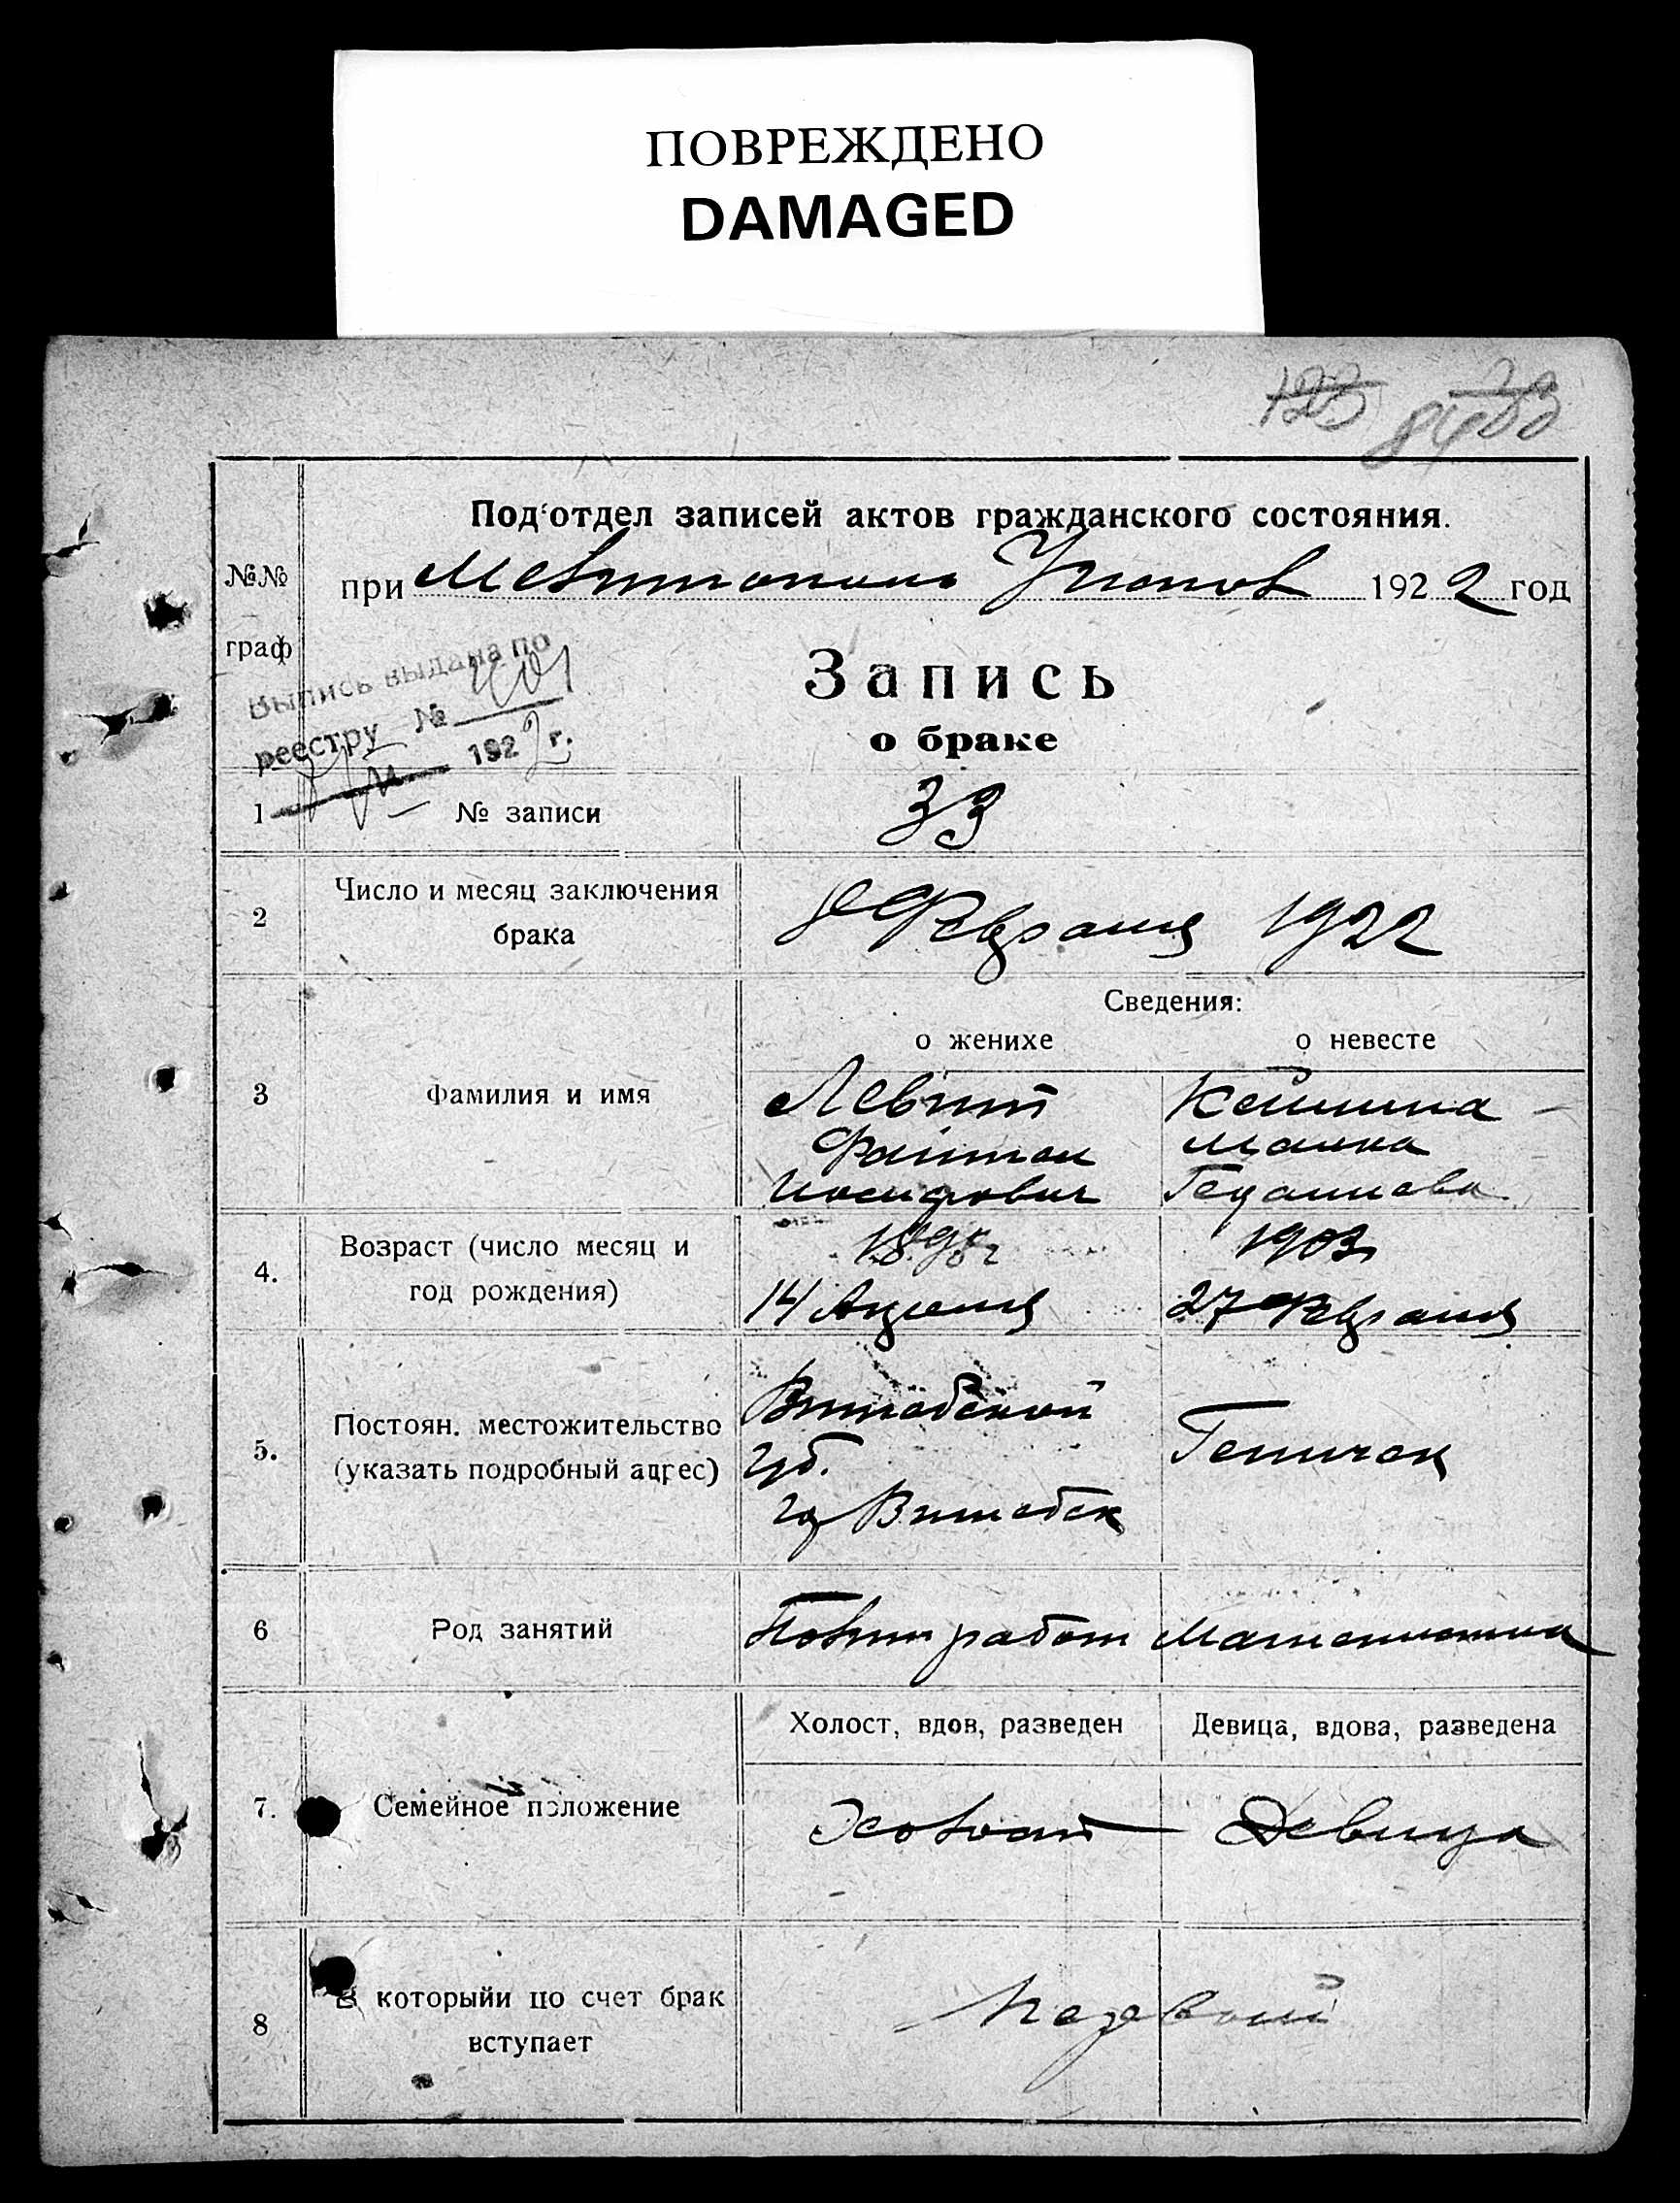 ПОВРЕЖДЕНО
DAMAGED
123
Под'отдел записей актов гражданского состояния.
№№ граф
при Мелитополь 1922 год
Выпись выдана по
реестру № 401
1922 г.
Запись
о браке
1 № записи 33
2 Число и месяц заключения брака 8 Февраля 1922
Сведения:
о женихе о невесте
3 Фамилия и имя
Левит
Файтел
Иосифович
Малка
Гедалиева
4. Возраст (число месяц и год рождения)
14 Апреля
1903
27 Февраля
5. Постоян. местожительство (указать подробный адрес)
Витебской
губ.
гор Витебск
Геническ
6 Род занятий
Полит работ
7. Семейное положение
Холост, вдов, разведен Девица, вдова, разведена
Холост Девица
8 В которыйи по счет брак вступает
Первый